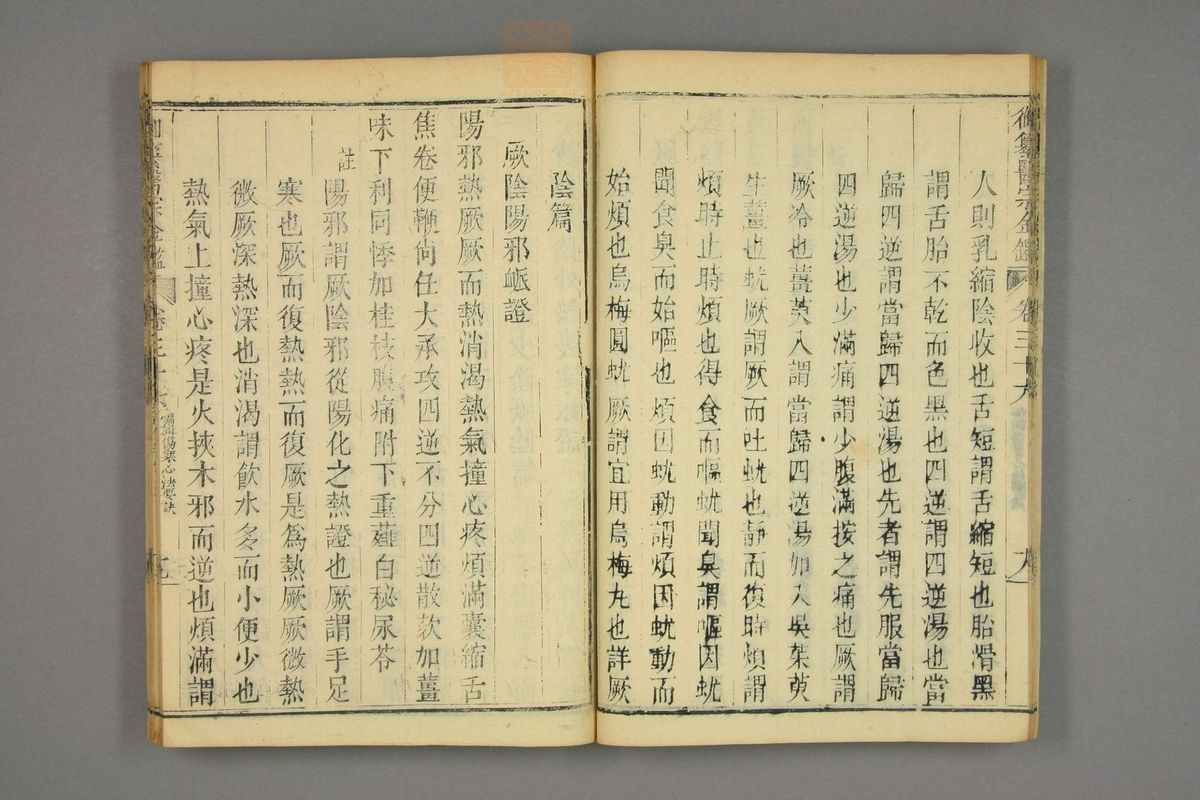 御纂醫宗金鑑 卷三十六
人則乳縮陰收也舌短謂舌縮短也胎滑黑
謂舌胎不乾而色黑也四逆謂四逆湯也當
歸四逆謂當歸四逆湯也先者謂先服當歸
四逆湯也少滿痛謂少腹滿按之痛也厥謂
厥冷也薑萸入謂當歸四逆湯加入吳茱萸
生薑也蚘厥謂厥而吐蚘也靜而復時煩謂
煩時止時煩也得食而嘔蚘聞臭謂嘔因蚘
聞食臭而始嘔也煩因蚘動謂煩因蚘動而
始煩也烏梅圓蚘厥謂宜用烏梅丸也詳厥
陰篇
厥陰陽邪衇證
陽邪熱厥厥而熱消渴熱氣撞心疼煩滿囊縮舌
焦卷便鞕尚任大承攻四逆不分四逆散欬加薑
味下利同悸加桂枝腹痛附下重薤白秘尿苓
註
陽邪謂厥陰邪從陽化之熱證也厥謂手足
寒也厥而復熱熱而復厥是爲熱厥厥微熱
微厥深熱深也消渴謂飲水多而小便少也
熱氣上撞心疼是火挾木邪而逆也煩滿謂
御纂醫宗金鑑 卷三十六 傷寒心法要訣